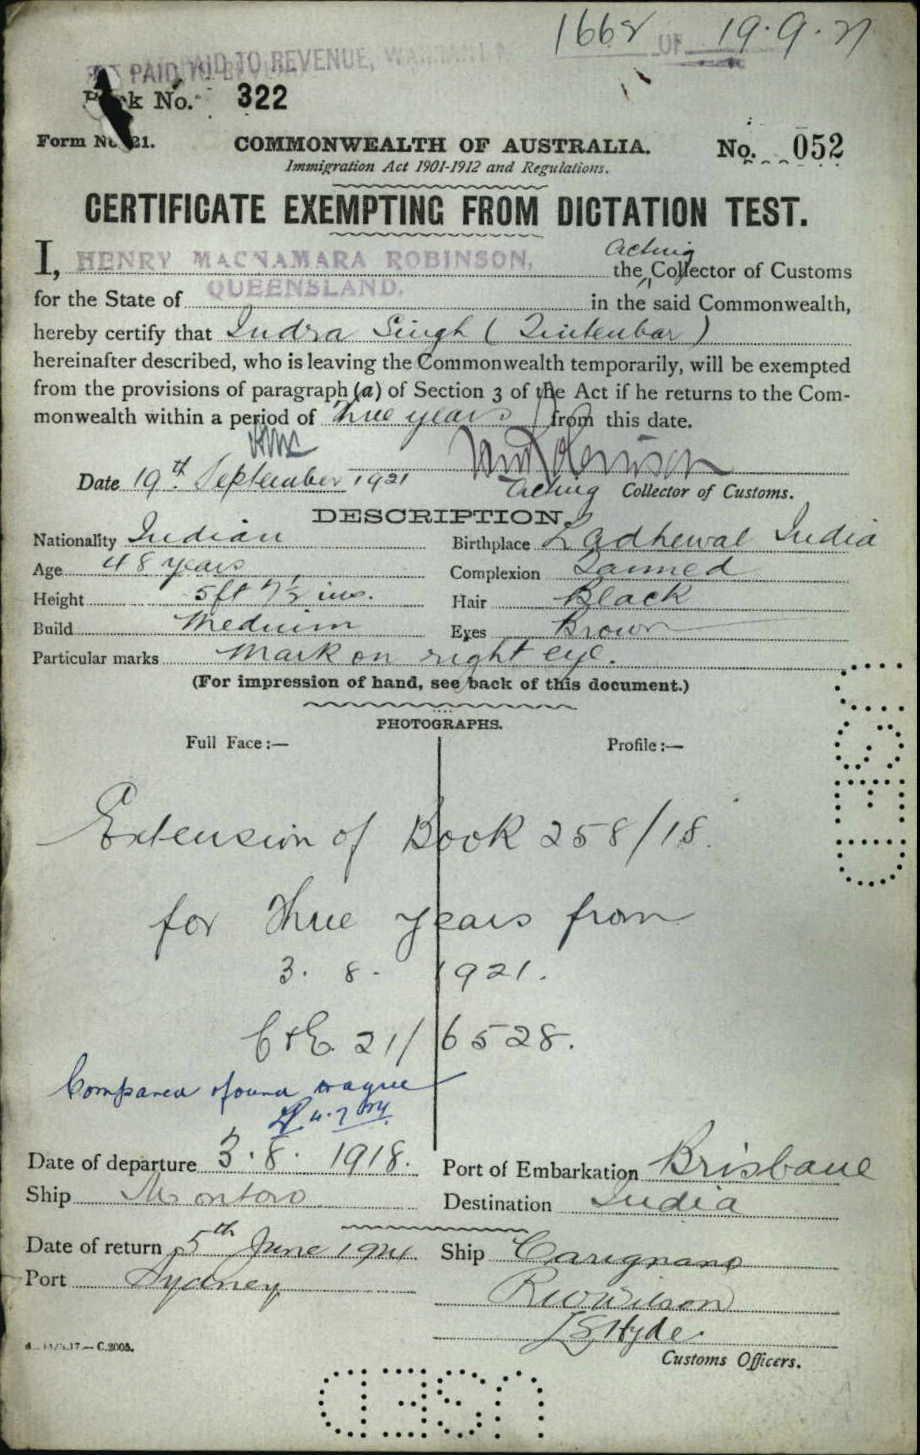 1668 OF 19.9.21
PAID TO REVENUE, WARRANT
Book No. 322
Form No. 21.
COMMONWEALTH OF AUSTRALIA.
No. 052
Immigration Act 1901-1912 and Regulations.
CERTIFICATE EXEMPTING FROM DICTATION TEST.
I, HENRY MACNAMARA ROBINSON, the Acting Collector of Customs
for the State of QUEENSLAND. in the said Commonwealth,
hereby certify that Indra Singh (Tintenbar)
hereinafter described, who is leaving the Commonwealth temporarily, will be exempted
from the provisions of paragraph (a) of Section 3 of the Act if he returns to the Com-
monwealth within a period of three years from this date.
Date 19th September 1921
Acting Collector of Customs.
DESCRIPTION.
Nationality Indian Birthplace Ladhewal India
Age 48 years Complexion Tanned
Height 5ft 7½ ins. Hair Black
Build Medium Eyes Brown
Particular marks Mark on right eye.
(For impression of hand, see back of this document.)
PHOTOGRAPHS.
Full Face :— Profile :—
Extension of Book 258/18.
for three years from
3. 8. 1921.
C&E. 21/6528.
Compared & found
Date of departure 3.8.1918. Port of Embarkation Brisbane
Ship Montoro Destination India
Date of return 5th June 1924 Ship Carignano
Port Sydney
RW Wilson
Hyde
Customs Officers.
C.2005.
USED
USED